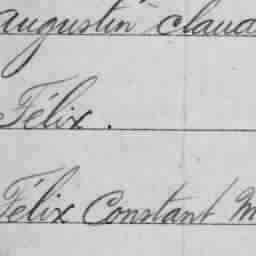 Augustin Claud
Félix.
Félix Constant M